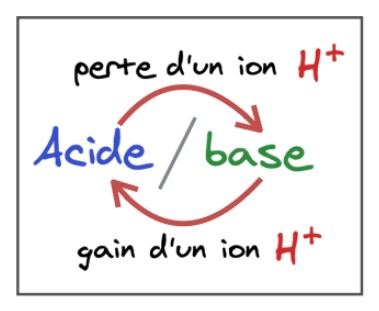 perte d'un ion H⁺
Acide / base
gain d'un ion H⁺